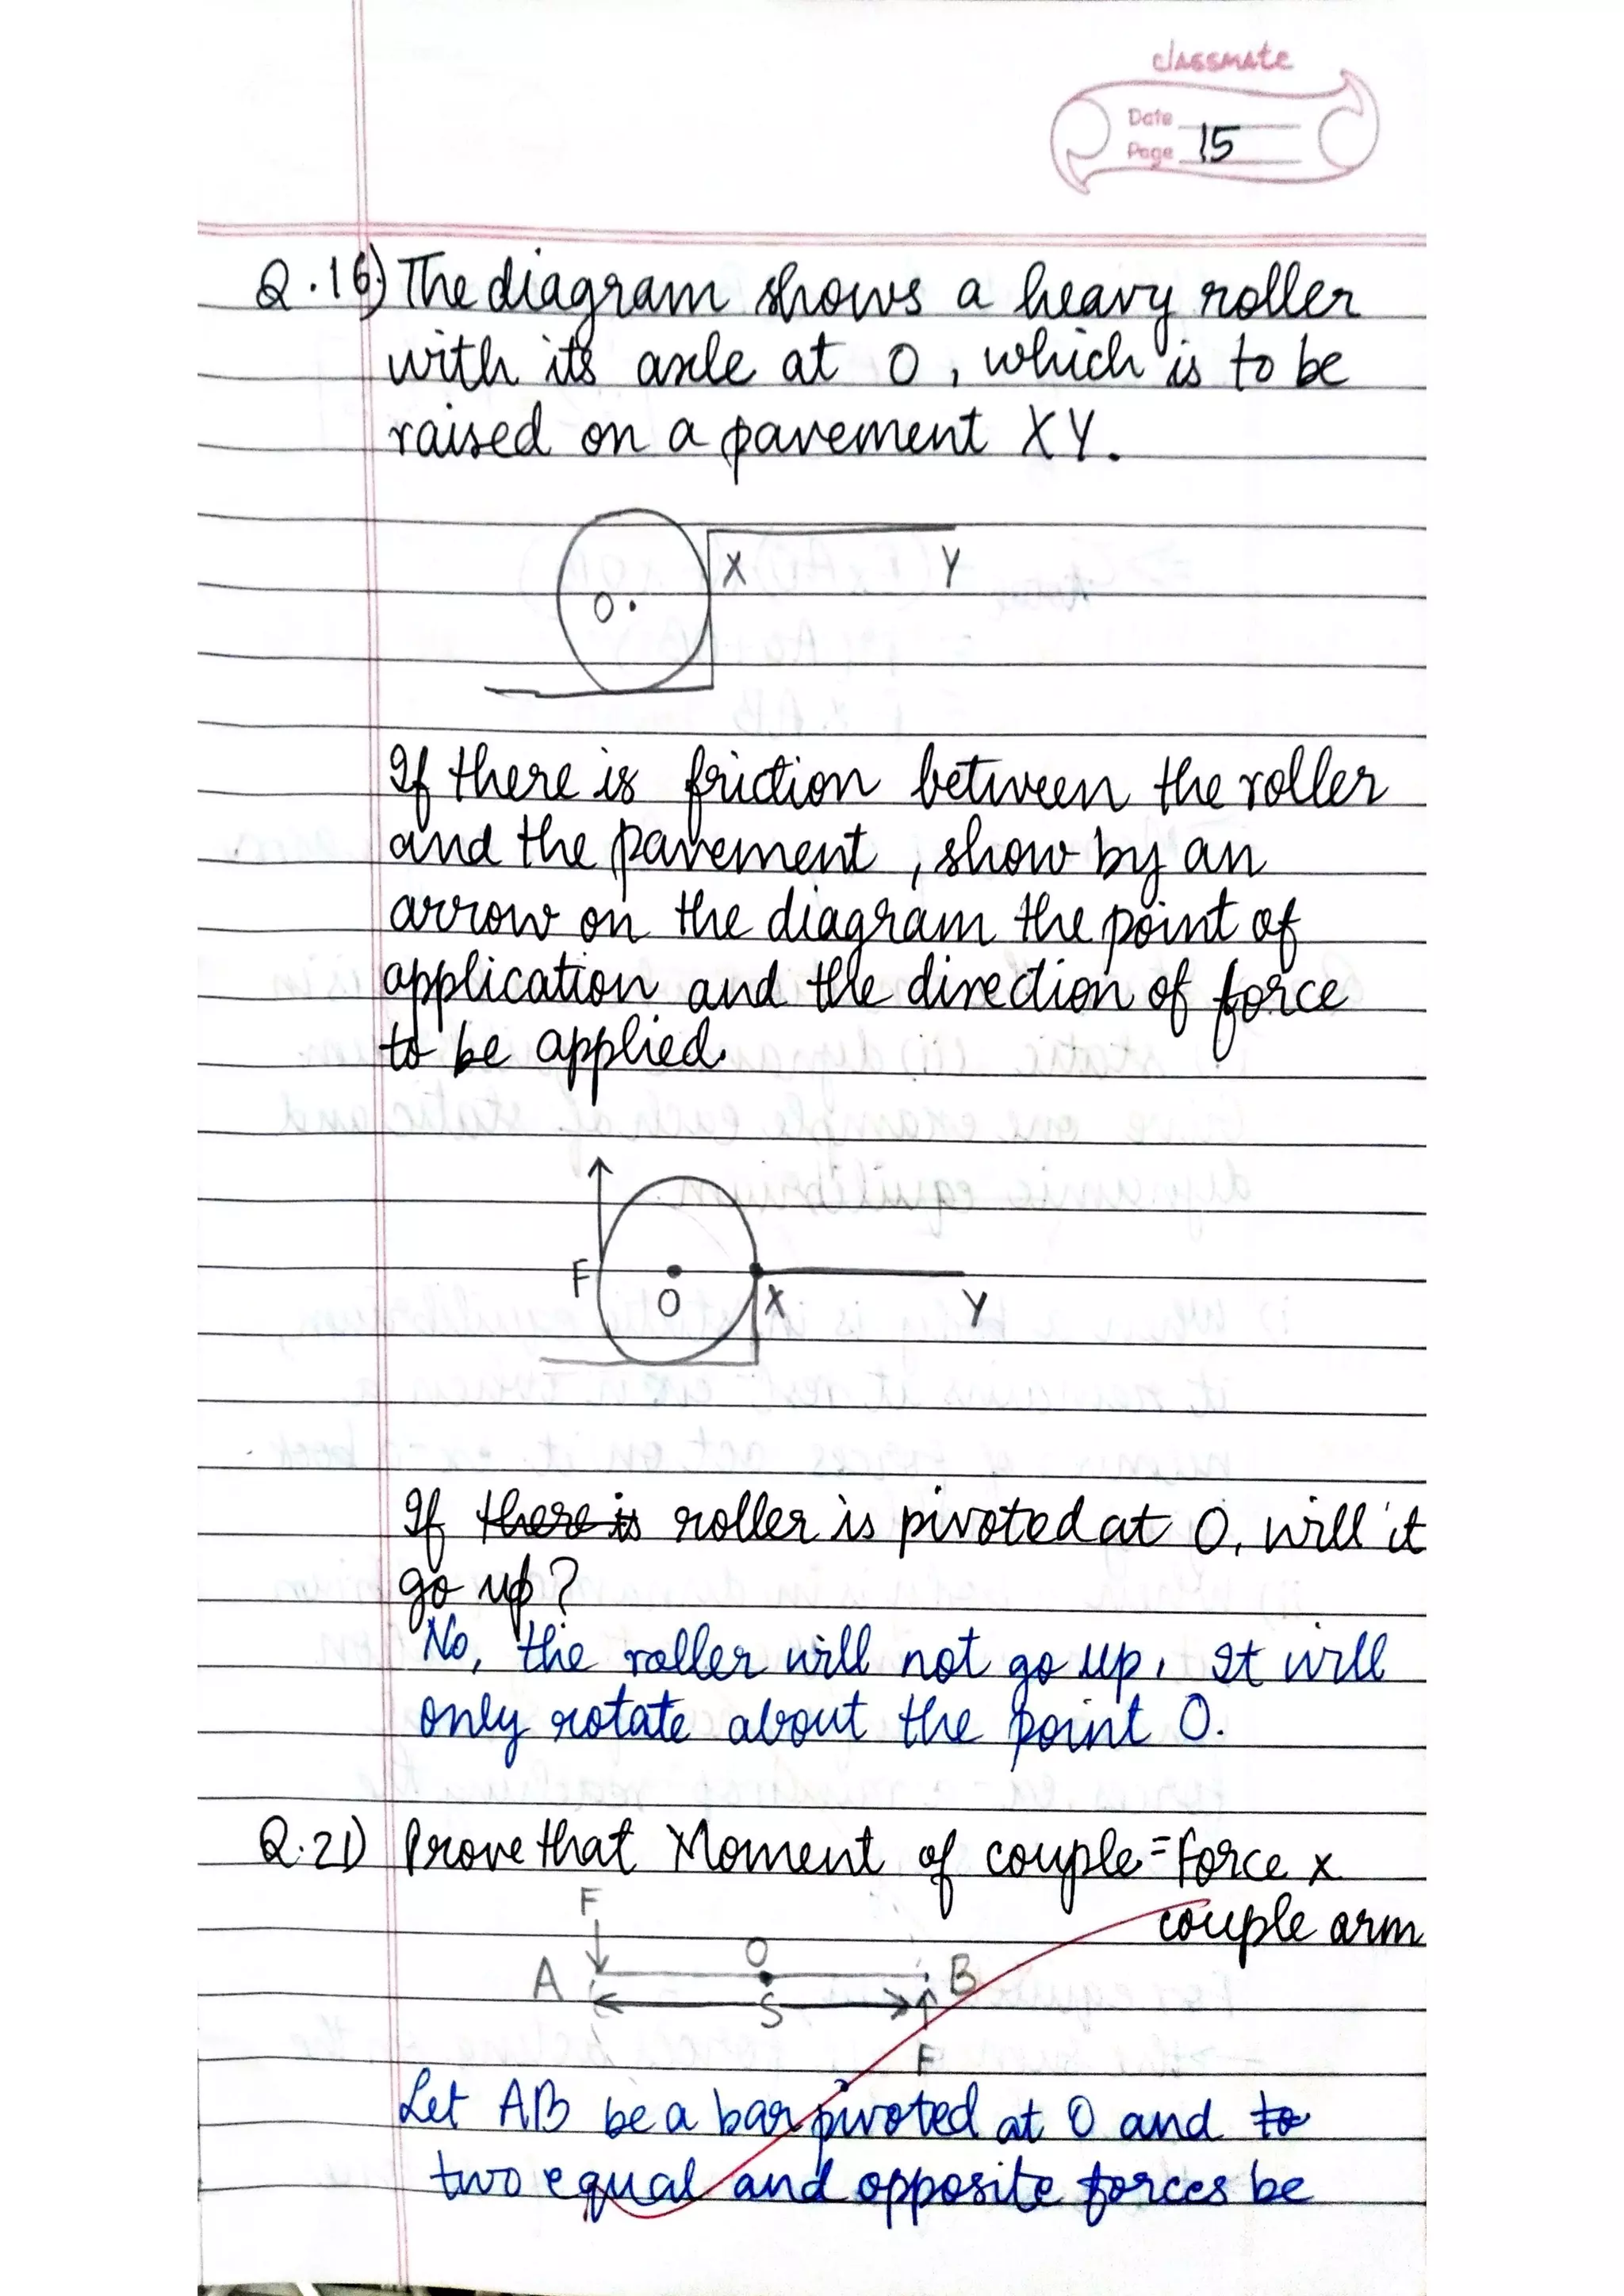 classmate
Date
Page 15
Q.16) The diagram shows a heavy roller
with its axle at O, which is to be
raised on a pavement XY.
X Y
O
If there is friction between the roller
and the pavement, show by an
arrow on the diagram the point of
application and the direction of force
to be applied.
F O X Y
If there is roller is pivoted at O, will it
go up?
No, the roller will not go up. It will
only rotate about the point O.
Q.21) Prove that Moment of couple = Force x
couple arm
F
A O B
S
F
Let AB be a bar pivoted at O and to
two equal and opposite forces be